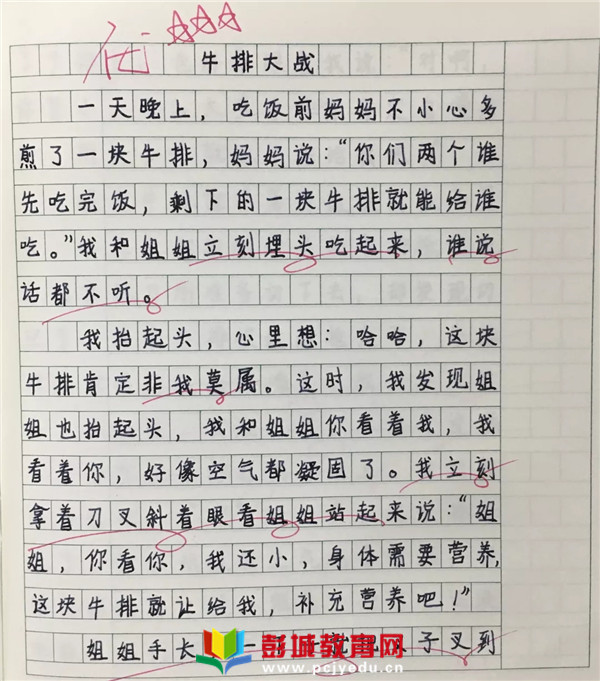 优
牛排大战
一天晚上，吃饭前妈妈不小心多
煎了一块牛排，妈妈说：“你们两个谁
先吃完饭，剩下的一块牛排就能给谁
吃。”我和姐姐立刻埋头吃起来，谁说
话都不听。
我抬起头，心里想：哈哈，这块
牛排肯定非我莫属。这时，我发现姐
姐也抬起头，我和姐姐你看着我，我
看着你，好像空气都凝固了。我立刻
拿着刀叉斜着眼看姐姐站起来说：“姐
姐，你看你，我还小，身体需要营养，
这块牛排就让给我，补充营养吧！”
姐姐手长，一 子叉到
彭城教育网
www.pcjyedu.cn